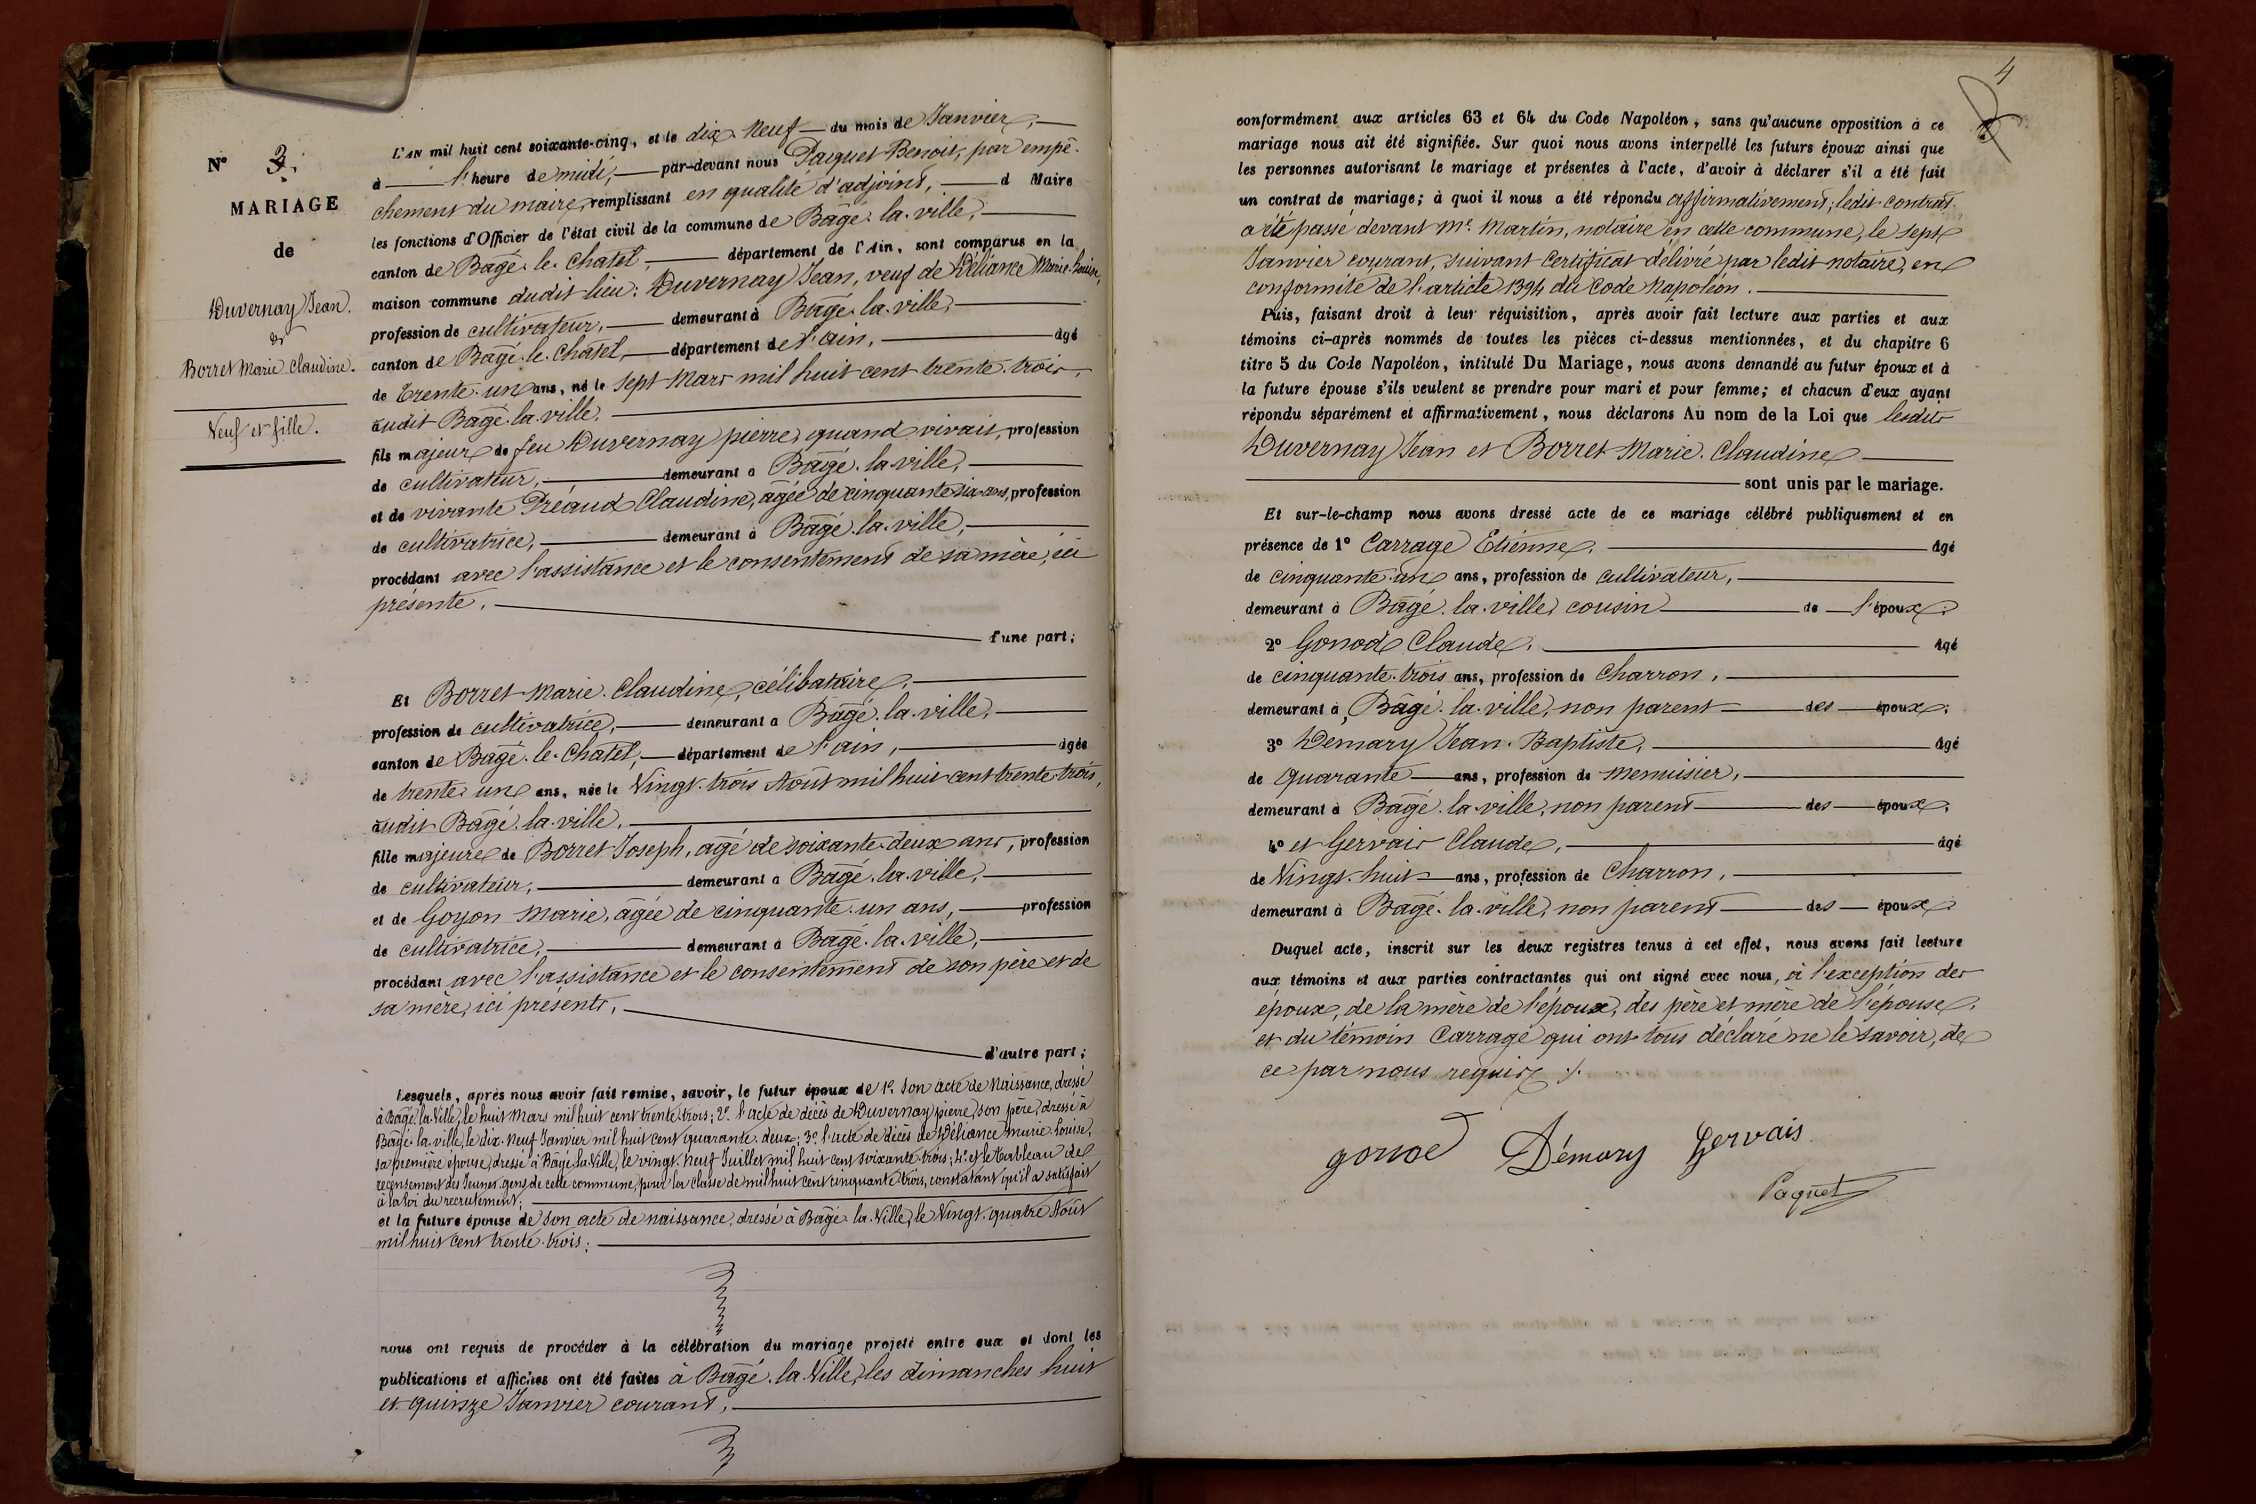 N° 3.
MARIAGE
de
Duvernay Jean.
et
Borret Marie Claudine.
Veuf et fille.
L'AN mil huit cent soixante-cinq, et le dix-neuf du mois de Janvier,
à l'heure de midi, par-devant nous Paquet Benoit, par empê-
chement du maire, remplissant en qualité d'adjoint, d Maire
les fonctions d'Officier de l'état civil de la commune de Bâgé-la-ville,
canton de Bâgé-le-Chatel, département de l'Ain, sont comparus en la
maison commune dudit lieu: Duvernay Jean, veuf de Déliance Marie-Louise,
profession de cultivateur, demeurant à Bâgé-la-ville,
canton de Bâgé-le-Chatel, département de l'ain, âgé
de trente-un ans, né le sept Mars mil huit cent trente-trois,
audit Bâgé-la-ville.
fils majeur de feu Duvernay pierre, quand vivait, profession
de cultivateur, demeurant à Bâgé-la-ville,
et de vivante Préaud Claudine, âgée de cinquante-six ans, profession
de cultivatrice, demeurant à Bâgé-la-ville,
procédant avec l'assistance et le consentement de sa mère, ici
présente.
d'une part;
Et Borret Marie-Claudine, célibataire,
profession de cultivatrice, demeurant à Bâgé-la-ville,
canton de Bâgé-le-Chatel, département de l'ain, âgée
de trente-un ans, née le Vingt-trois Août mil huit cent trente-trois,
audit Bâgé-la-ville.
fille majeure de Borret Joseph, âgé de soixante-deux ans, profession
de cultivateur, demeurant à Bâgé-la-ville,
et de Goyon Marie, âgée de cinquante-un ans, profession
de cultivatrice, demeurant à Bâgé-la-ville,
procédant avec l'assistance et le consentement de son père et de
sa mère, ici présents.
d'autre part;
Lesquels, après nous avoir fait remise, savoir, le futur époux de 1°. Son acte de Naissance, dressé
à Bâgé-la-Ville, le huit Mars mil huit cent trente-trois; 2°. l'acte de décès de Duvernay pierre, son père, dressé à
Bâgé-la-ville, le dix-neuf Janvier mil huit cent quarante-deux; 3°. l'acte de décès de Déliance Marie-Louise,
sa première épouse, dressé à Bâgé-la-Ville, le vingt-neuf Juillet mil huit cent soixante-trois; 4°. et le tableau de
recensement des Jeunes gens de cette commune, pour la classe de mil huit cent cinquante-trois, constatant qu'il a satisfait
à la loi du recrutement;
et la future épouse de son acte de naissance, dressé à Bâgé-la-Ville, le Vingt-quatre Août
mil huit cent trente-trois;
nous ont requis de procéder à la célébration du mariage projeté entre eux et dont les
publications et affiches ont été faites à Bâgé-la-Ville, les dimanches huit
et quinze Janvier courant,
4
conformément aux articles 63 et 64 du Code Napoléon, sans qu'aucune opposition à ce
mariage nous ait été signifiée. Sur quoi nous avons interpellé les futurs époux ainsi que
les personnes autorisant le mariage et présentes à l'acte, d'avoir à déclarer s'il a été fait
un contrat de mariage; à quoi il nous a été répondu affirmativement; ledit contrat
a été passé devant Me. Martin, notaire en cette commune, le sept
Janvier courant, suivant certificat délivré par ledit notaire, en
conformité de l'article 1394 du Code Napoléon.
Puis, faisant droit à leur réquisition, après avoir fait lecture aux parties et aux
témoins ci-après nommés de toutes les pièces ci-dessus mentionnées, et du chapitre 6
titre 5 du Code Napoléon, intitulé Du Mariage, nous avons demandé au futur époux et à
la future épouse s'ils veulent se prendre pour mari et pour femme; et chacun d'eux ayant
répondu séparément et affirmativement, nous déclarons Au nom de la Loi que lesdits
Duvernay Jean et Borret Marie-Claudine
sont unis par le mariage.
Et sur-le-champ nous avons dressé acte de ce mariage célébré publiquement et en
présence de 1° Carrage Etienne, âgé
de cinquante-un ans, profession de cultivateur,
demeurant à Bâgé-la-ville, cousin de l'époux;
2° Gonod Claude, âgé
de cinquante-trois ans, profession de Charron,
demeurant à Bâgé-la-ville, non parent des époux;
3° Démary Jean-Baptiste, âgé
de quarante ans, profession de menuisier,
demeurant à Bâgé-la-ville, non parent des époux;
4° et Gervais Claude, âgé
de Vingt-huit ans, profession de Charron,
demeurant à Bâgé-la-ville, non parent des époux;
Duquel acte, inscrit sur les deux registres tenus à cet effet, nous avons fait lecture
aux témoins et aux parties contractantes qui ont signé avec nous, à l'exception des
époux, de la mère de l'époux, des père et mère de l'épouse,
et du témoin Carrage qui ont tous déclaré ne le savoir, de
ce par nous requis.
gonod Démary Gervais
Paquet